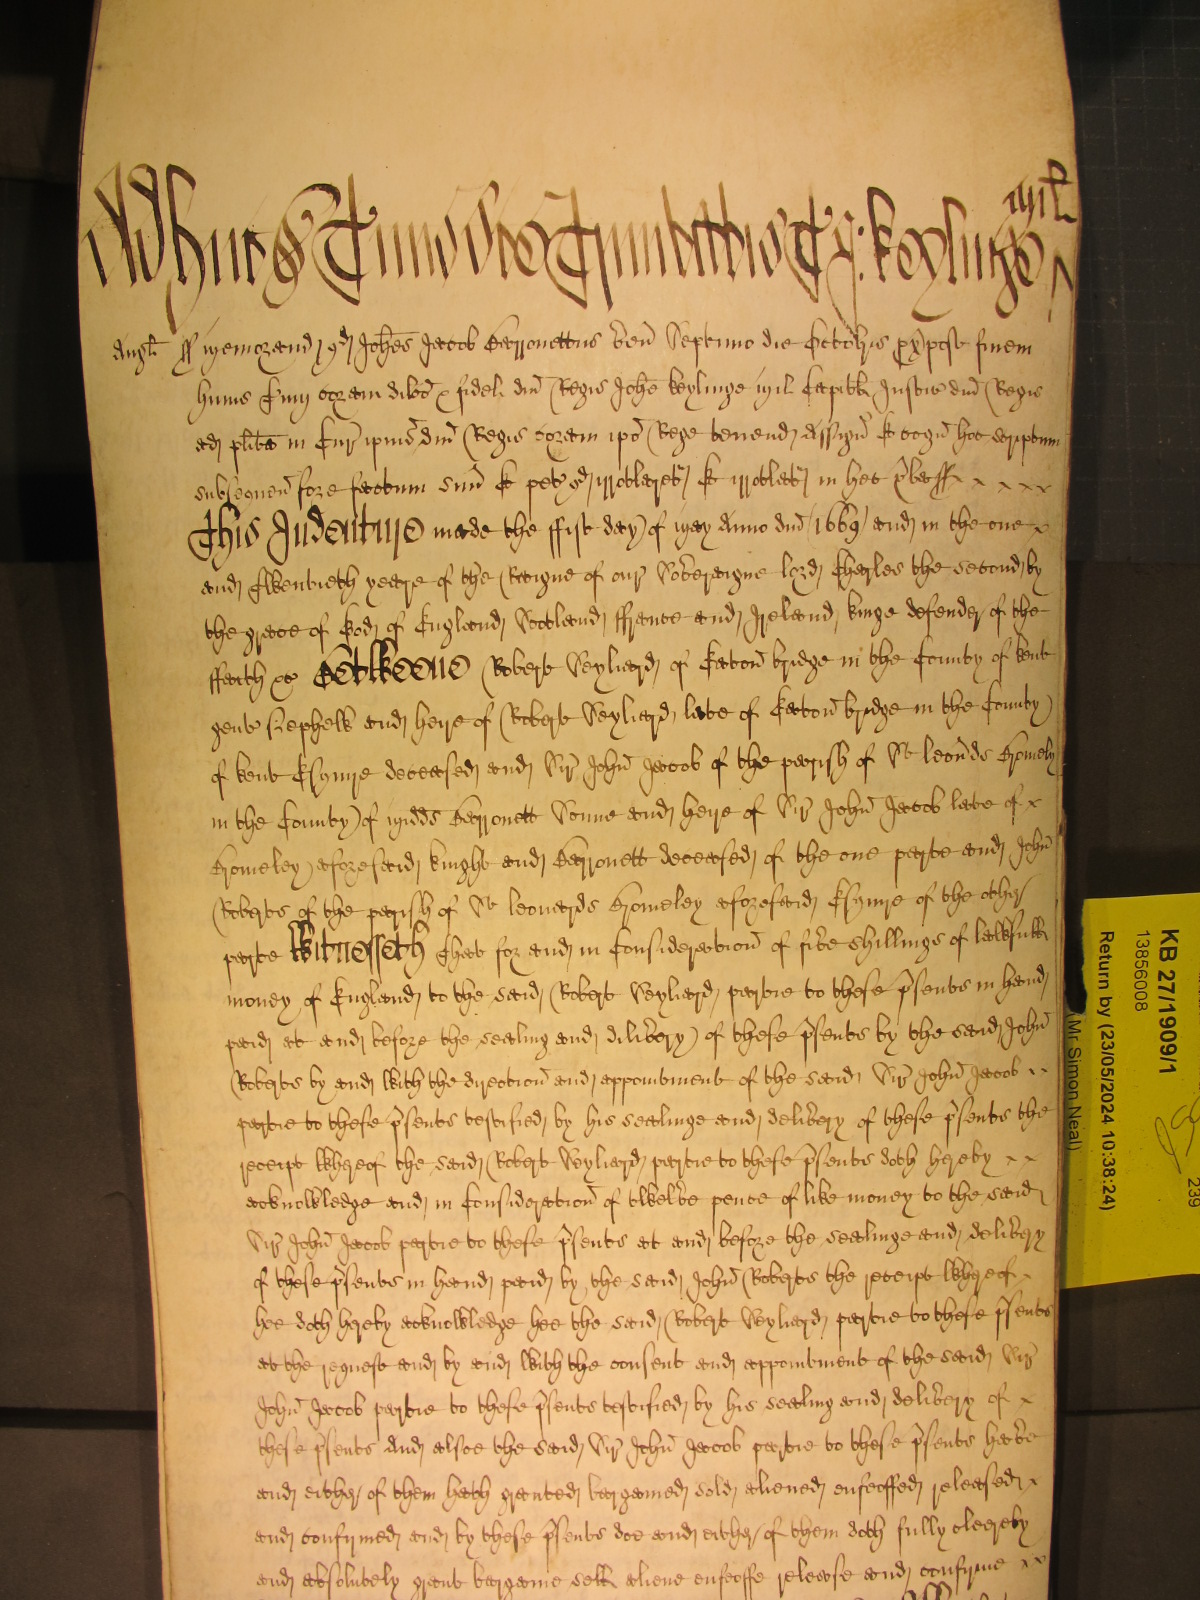 Adhuc de Termino Sce Trinitatis T J: Keylinge
mil
Angl ss Memorand qd Johes Jacob Barronettus ven Septimo die Octobris px post finem
huius Tmi coram dilco & fideli dni Regis Johe Keylinge mil Capitli Justic dni Regis
ad plita in Cur ipius dni Regis coram ipo Rege tenend Assign & cogn hoc scriptum
subsequen fore factum suu & pet qd irrotleret & irrotlat in hec vba ss x x x x x
This Indenture made the ffist day of May Anno dni 1669 and in the one x
and Twentieth yeare of the Raigne of our Sov'eraigne lord Charles the second by
the grace of God of England Scotland ffrance and Ireland kinge defender of the
ffaith &c Betweene Robert Seyliard of Eaton bridge in the County of Kent
gent Nephew and heire of Robert Seyliard late of Eaton bridge in the County
of Kent Esquire deceased and Sir John Jacob of the parish of St Leon'ds Bromely
in the County of Midds Barronett Sonne and heire of Sir John Jacob late of x
Bromeley aforesaid knight and Barronett deceased of the one parte and John
Roberts of the parish of St Leonards Bromeley aforesaid Esquire of the other
parte Witnesseth That for and in Consideration of five shillings of lawfull
money of England to the said Robert Seyliard partie to these p'sents in hand
paid at and before the sealing and delivery of these p'sents by the said John
Roberts by and with the direction and appointment of the said Sir John Jacob x x
partie to these p'sents testified by his sealinge and delivery of these p'sents the
receipt whereof the said Robert Seyliard partie to these p'sents doth hereby x x
acknowledge and in Consideration of twelve pence of like money to the said
Sir John Jacob partie to these p'sents at and before the sealinge and delivery
of these p'sents in hand paid by the said John Roberts the receipt whereof x
hee doth hereby acknowledge hee the said Robert Seyliard partie to these p'sents
at the request and by and with the consent and appointment of the said Sir
John Jacob partie to these p'sents testified by his sealing and delivery of x
these p'sents And alsoe the said Sir John Jacob partie to these p'sents have
and either of them hath granted bargained sold aliened enfeoffed released x
and confirmed and by these p'sents doe and either of them doth fully clearely
and absolutely grant bargaine sell aliene enfeoffe release and confirme x x
KB 27/1909/1
13856008
Return by (23/05/2024 10:38:24)
(Mr Simon Neal)
239